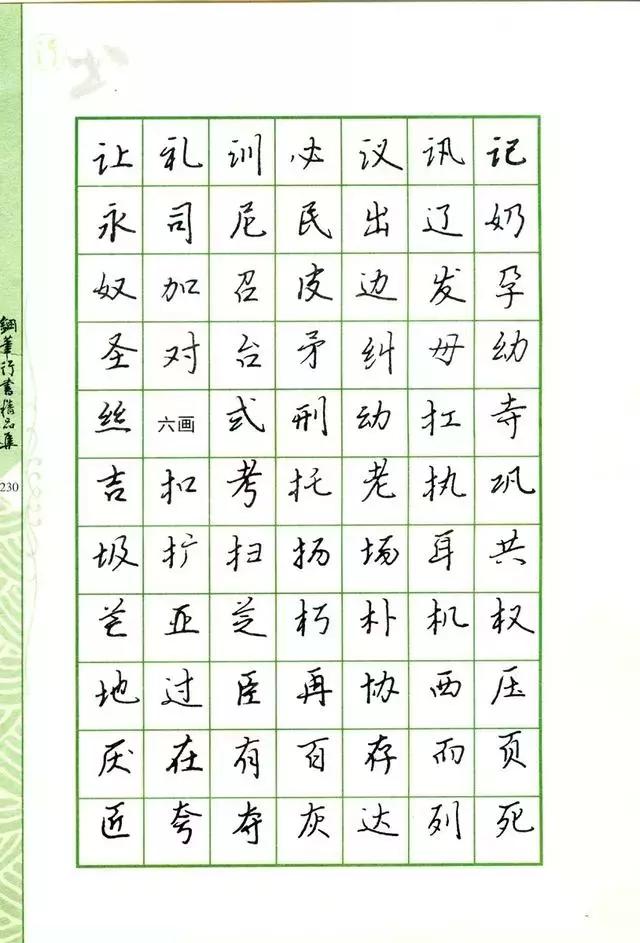 让礼训必议讯记
永司尼民出辽奶
奴加召皮边发孕
圣对台矛纠母幼
丝六画式刑动扛寺
吉扣考托老执巩
圾扩扫扬场耳共
芒亚芝朽朴机权
地过臣再协西压
厌在有百存而页
匠夸夺灰达列死
钢笔行书精品集
230